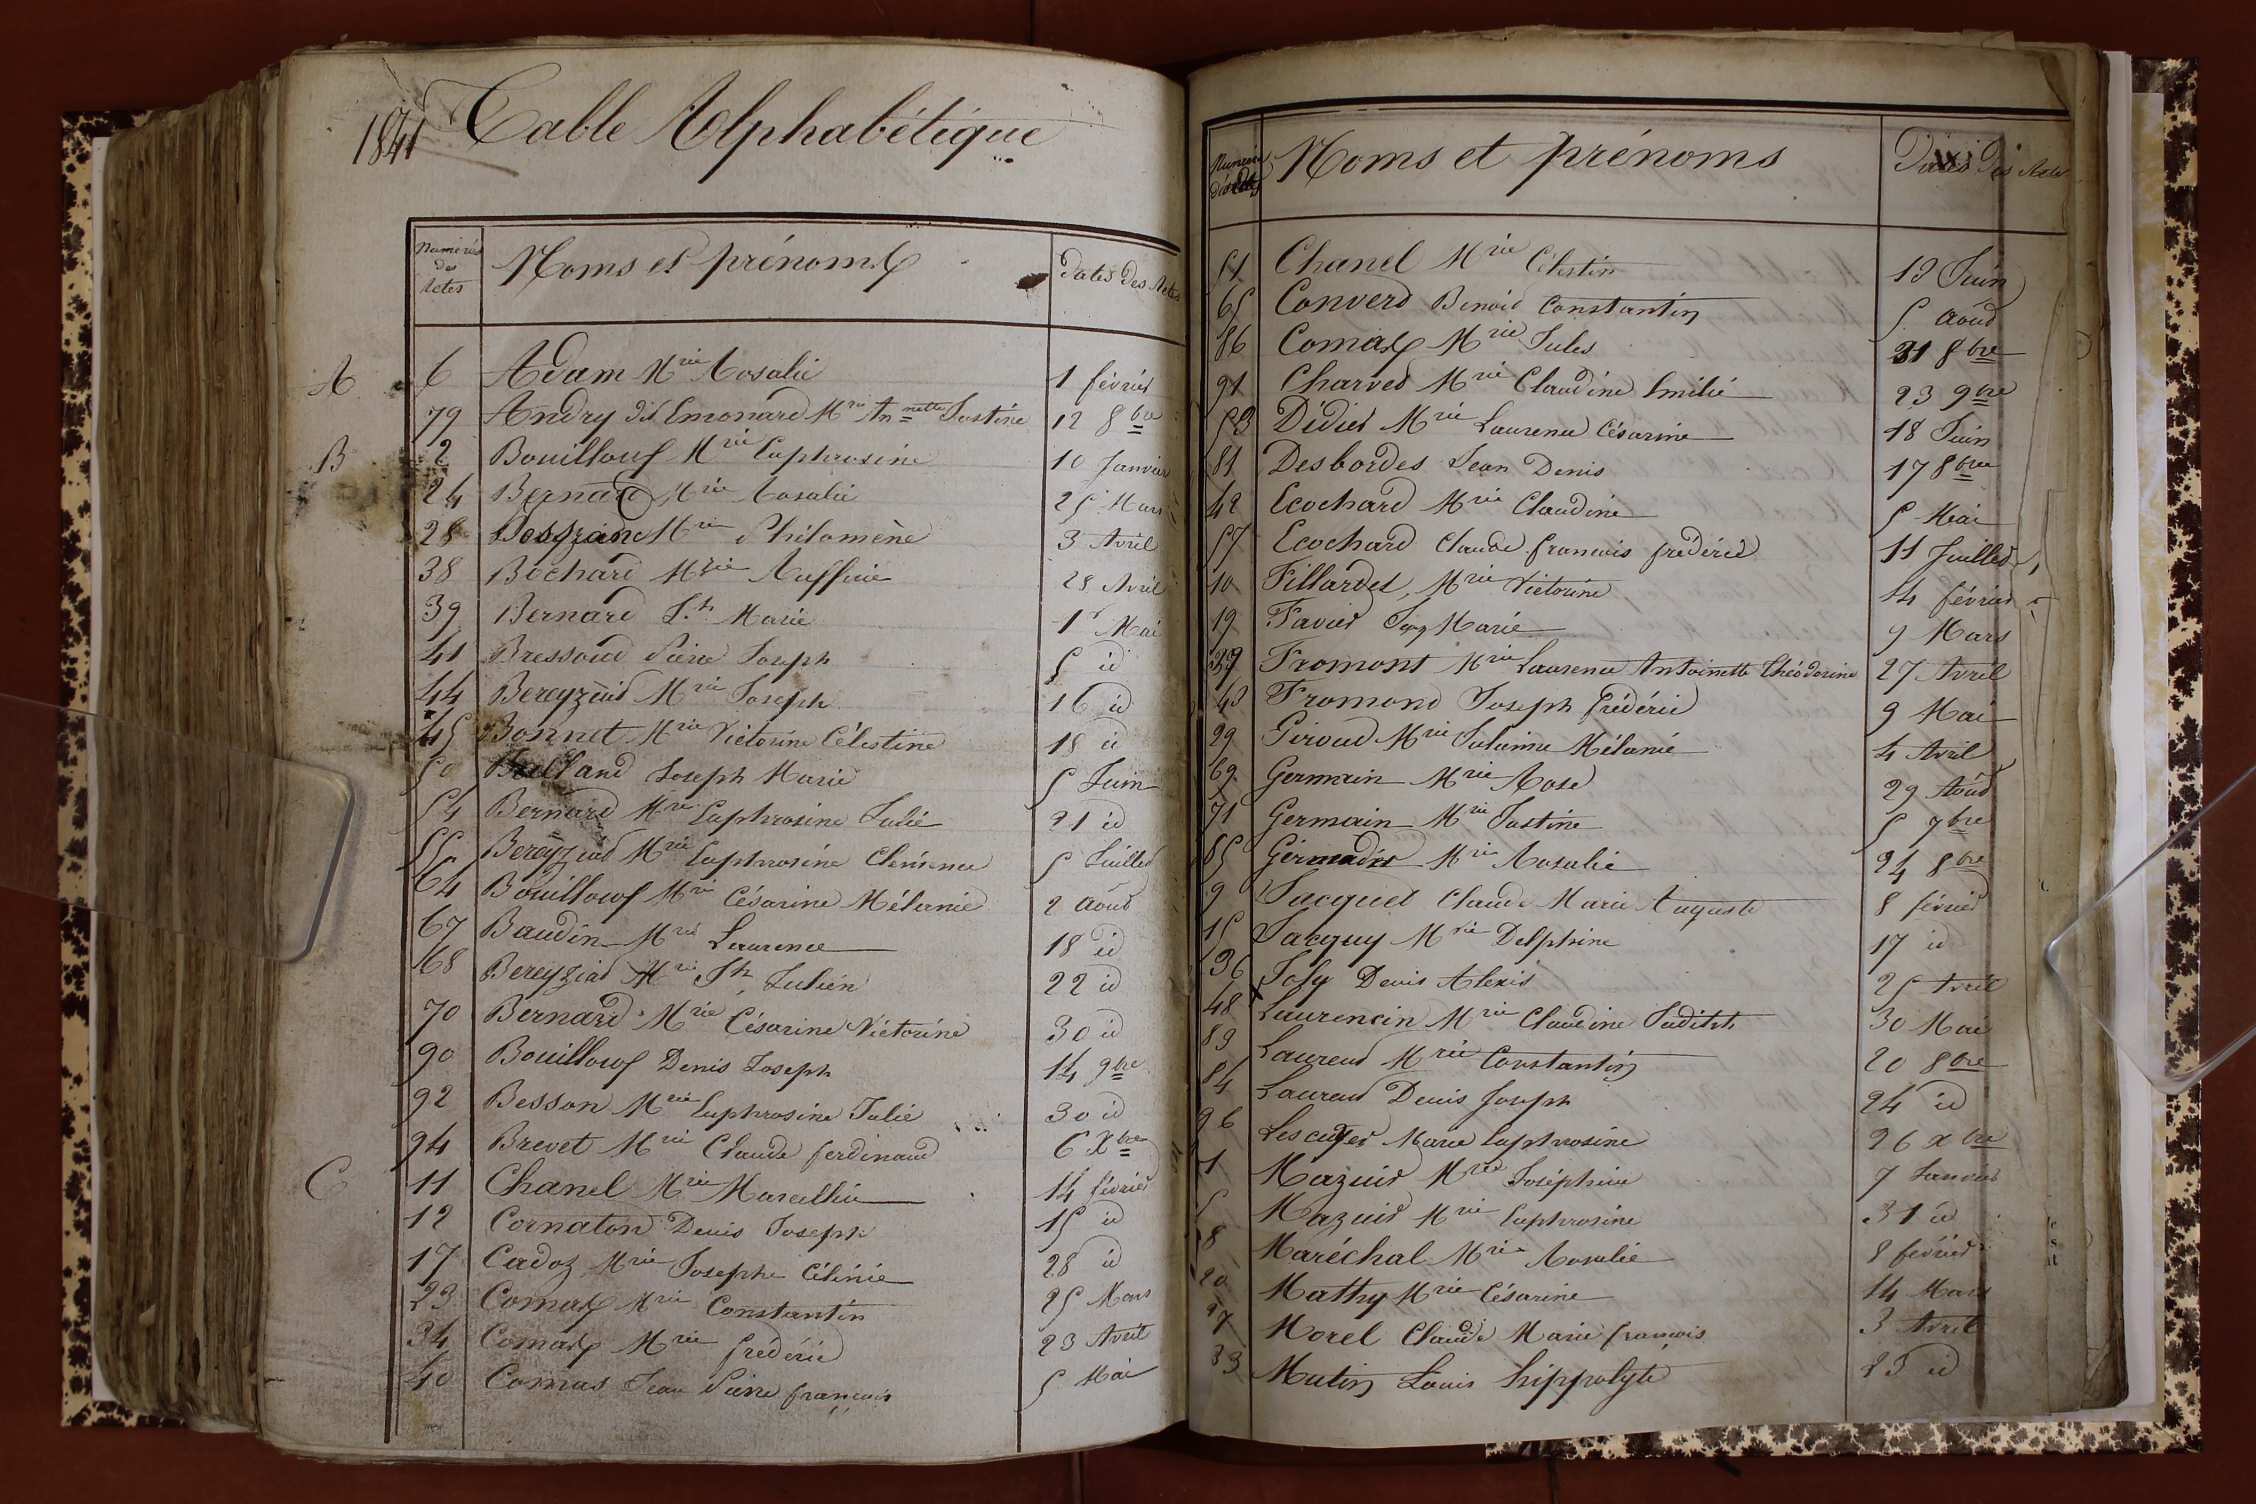 1841 Table Alphabétique
Numéros des Actes
Noms et prénoms
Dates des Actes
A 6 Adam Mrie Rosalie 1 février
79 Andry dit Emonard Mrie Annette Justine 12 8bre
B 2 Bouilloux Mrie Euphrosine 10 Janvier
24 Bernard Mrie Rosalie 25 Mars
28 Mrie Philomène 3 Avril
38 Bochard Mrie Ruffine 28 Avril
39 Bernard Jh Marie 1r Mai
41 Bressoud Pierre Joseph 5 id
44 Bereyziat Mrie Joseph 16 id
45 Bonnet Mrie Victorine Célestine 18 id
50 Joseph Marie 5 Juin
54 Bernard Mrie Euphrosine Julie 21 id
55 Bereyziat Mrie Euphrosine Clémence 5 Juillet
64 Bouilloux Mrie Césarine Mélanie 2 Août
67 Baudin Mrie Laurence 18 id
68 Bereyziat Mrie Jh Julien 22 id
70 Bernard Mrie Césarine Victorine 30 id
90 Bouilloux Denis Joseph 14 9bre
92 Besson Mrie Euphrosine Julie 30 id
94 Brevet Mrie Claude ferdinand 6 Xbre
C 11 Chanel Mrie Marcellin 14 février
12 Cornaton Denis Joseph 15 id
17 Cadoz Mrie Josephe Célinie 28 id
23 Comas Mrie Constantin 25 Mars
34 Comas Mrie frédéric 23 Avril
40 Comas Jean Pierre françois 5 Mai
Numéros des Actes
Noms et prénoms
Dates des Actes
51 Chanel Mrie Célestin 13 Juin
65 Converd Benoit Constantin 5 Août
86 Comas Mrie Jules 31 8bre
91 Charved Mrie Claudine Emilie 23 9bre
53 Didier Mrie Laurence Césarine 18 Juin
81 Desbordes Jean Denis 17 8bre
42 Ecochard Mrie Claudine 5 Mai
57 Ecochard Claude françois frédéric 11 Juillet
10 Fillardet, Mrie Victorine 14 février
19 Favier Marie 9 Mars
37 Fromont Mrie Laurence Antoinette Théodorine 27 Avril
43 Fromond Joseph frédéric 9 Mai
29 Giroud Mrie Mélanie 4 Avril
69 Germain Mrie Rose 29 Août
71 Germain Mrie Justine 5 7bre
85 Mrie Rosalie 24 8bre
9 Jacquet Claude Marie Auguste 8 février
15 Jacquy Mrie Delphine 17 id
36 Joly Denis Alexis 25 Avril
48 Laurencin Mrie Claudine Judith 30 Mai
83 Laurend Mrie Constantin 20 8bre
84 Laurend Denis Joseph 24 id
96 Lescuyer Marie Euphrosine 26 Xbre
1 Mazuir Mrie Joséphine 7 Janvier
5 Mazuir Mrie Euphrosine 31 id
8 Maréchal Mrie Rosalie 8 février
20 Mathy Mrie Césarine 14 Mars
27 Morel Claude Marie françois 3 Avril
33 Mutin Louis hippolyte 23 id